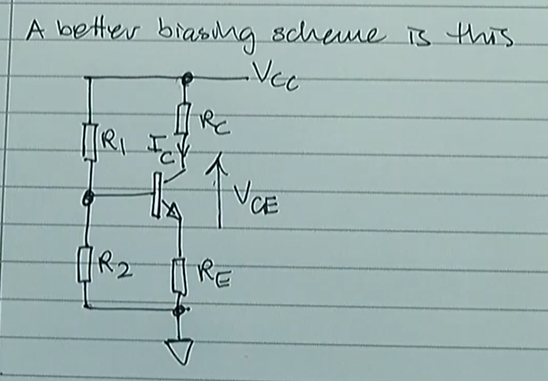 A better biasing scheme is this
VCC
R1
IC
RC
VCE
R2
RE